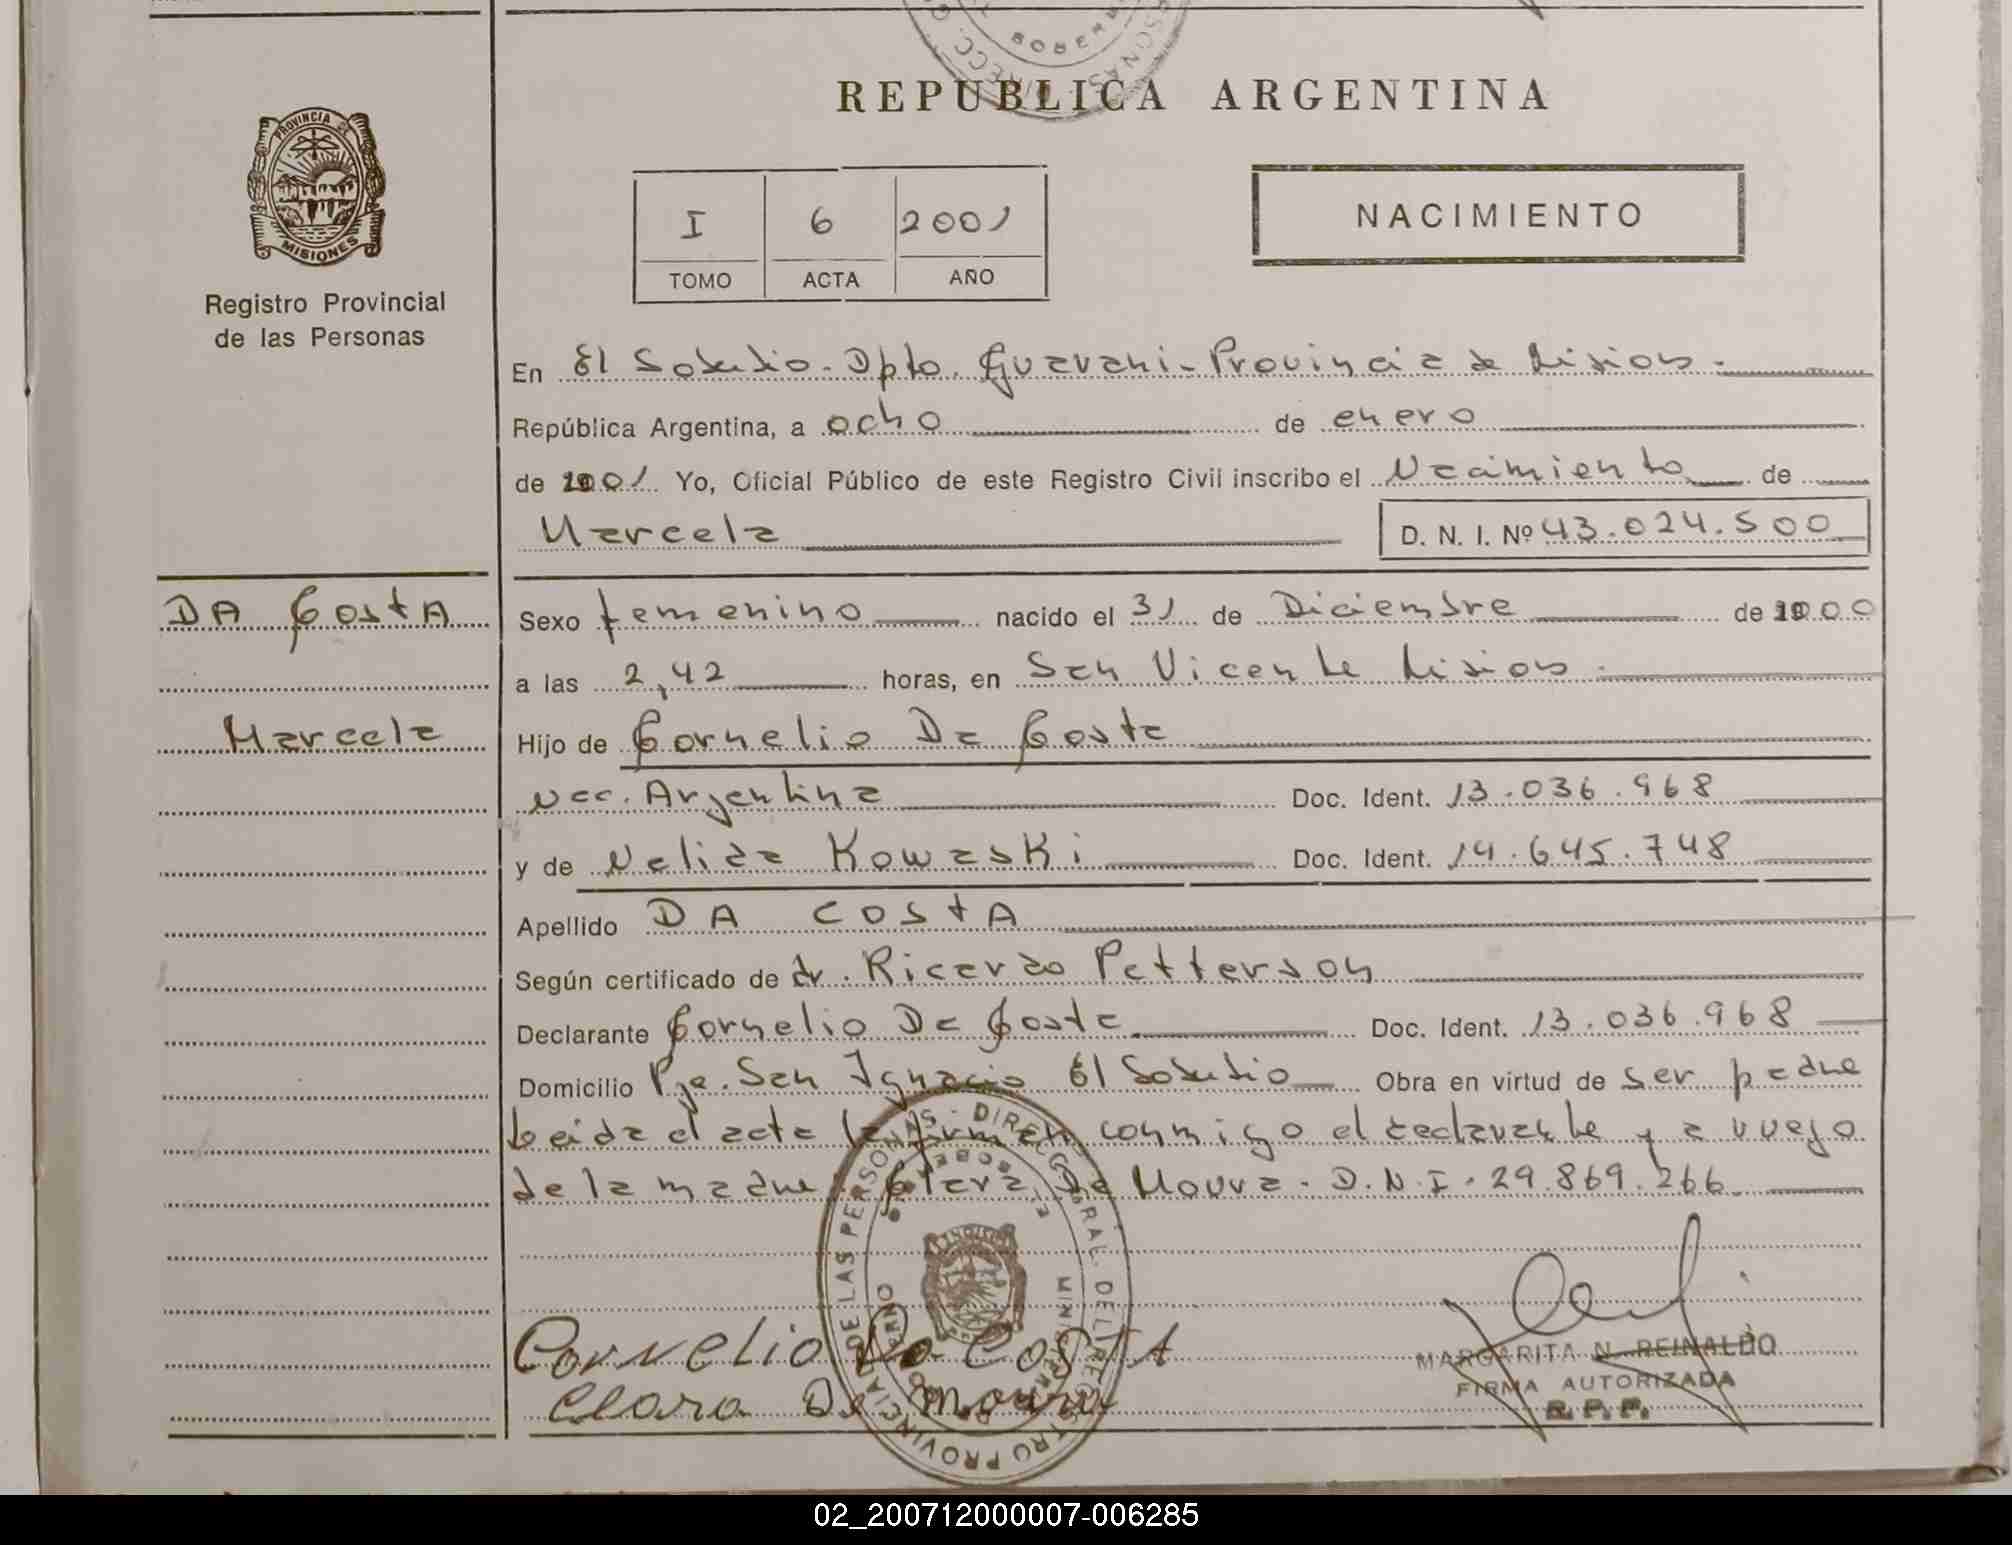 REPUBLICA ARGENTINA
PROVINCIA DE
MISIONES
Registro Provincial
de las Personas
I 6 2001
TOMO ACTA AÑO
NACIMIENTO
En El Soberbio. Dpto. Guarani - Provincia de Misiones.
República Argentina, a ocho de enero
de 2001 Yo, Oficial Público de este Registro Civil inscribo el Nacimiento de
Marcela D. N. I. Nº 43.024.500
DA Costa
Marcela
Sexo femenino nacido el 31 de Diciembre de 2000
a las 2,42 horas, en San Vicente Misiones.
Hijo de Cornelio Da Costa
Nac. Argentina Doc. Ident. 13.036.968
y de Nelida Kowaski Doc. Ident. 14.645.748
Apellido DA COStA
Según certificado de dr. Ricardo Petterson
Declarante Cornelio Da Costa Doc. Ident. 13.036.968
Domicilio Pje. San Ignacio El Soberbio Obra en virtud de ser padre
Leida el acta la firman conmigo el declarante y a ruego
de la madre Clara De Moura. D.N.I. 29.869.266
Cornelio Da COStA
Clara De Moura
MARGARITA N. REINALDO
FIRMA AUTORIZADA
R.P.P.
02_200712000007-006285